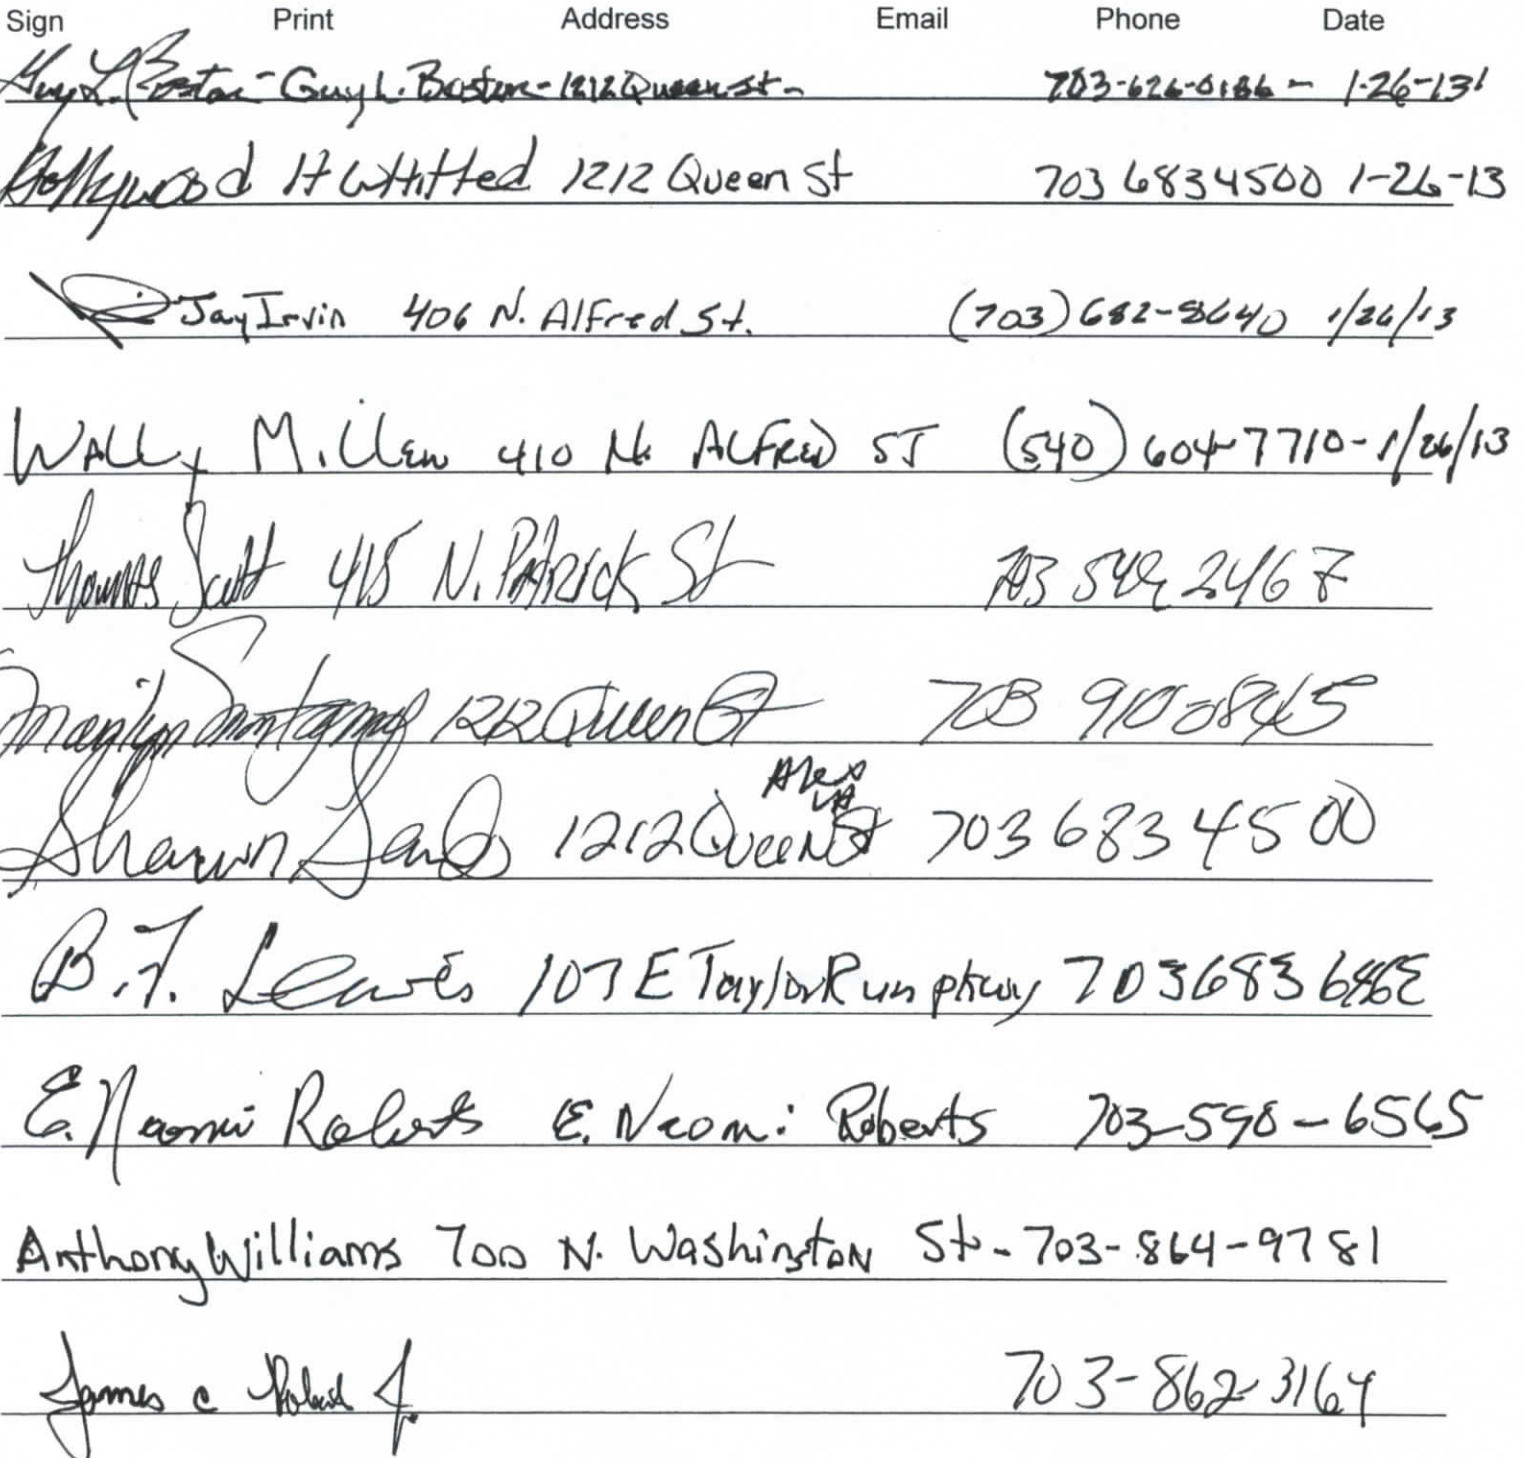 Sign Print Address Email Phone Date
Guy L. Boston - Guy L. Boston - 1212 Queen St - 703-626-0186 - 1-26-13
Hollywood H Whitted 1212 Queen St 703 683 4500 1-26-13
Jay Irvin 406 N. Alfred St. (703) 682-8640 1/26/13
Wally Millen 410 N. Alfred ST (540) 604-7710 - 1/26/13
Thomas Scott 415 N. Patrick St 703 549 2467
Marilyn Montgomery 1212 Queen St 703 910-0845
Alex VA
Shawn 1212 Queen St 703 683 4500
B.F. Lewis 107 E Taylor Run pkwy 703 683
E. Naomi Roberts E. Neomi Roberts 703-590-6565
Anthony Williams 700 N. Washington St - 703-864-9781
James C 703-862-3164